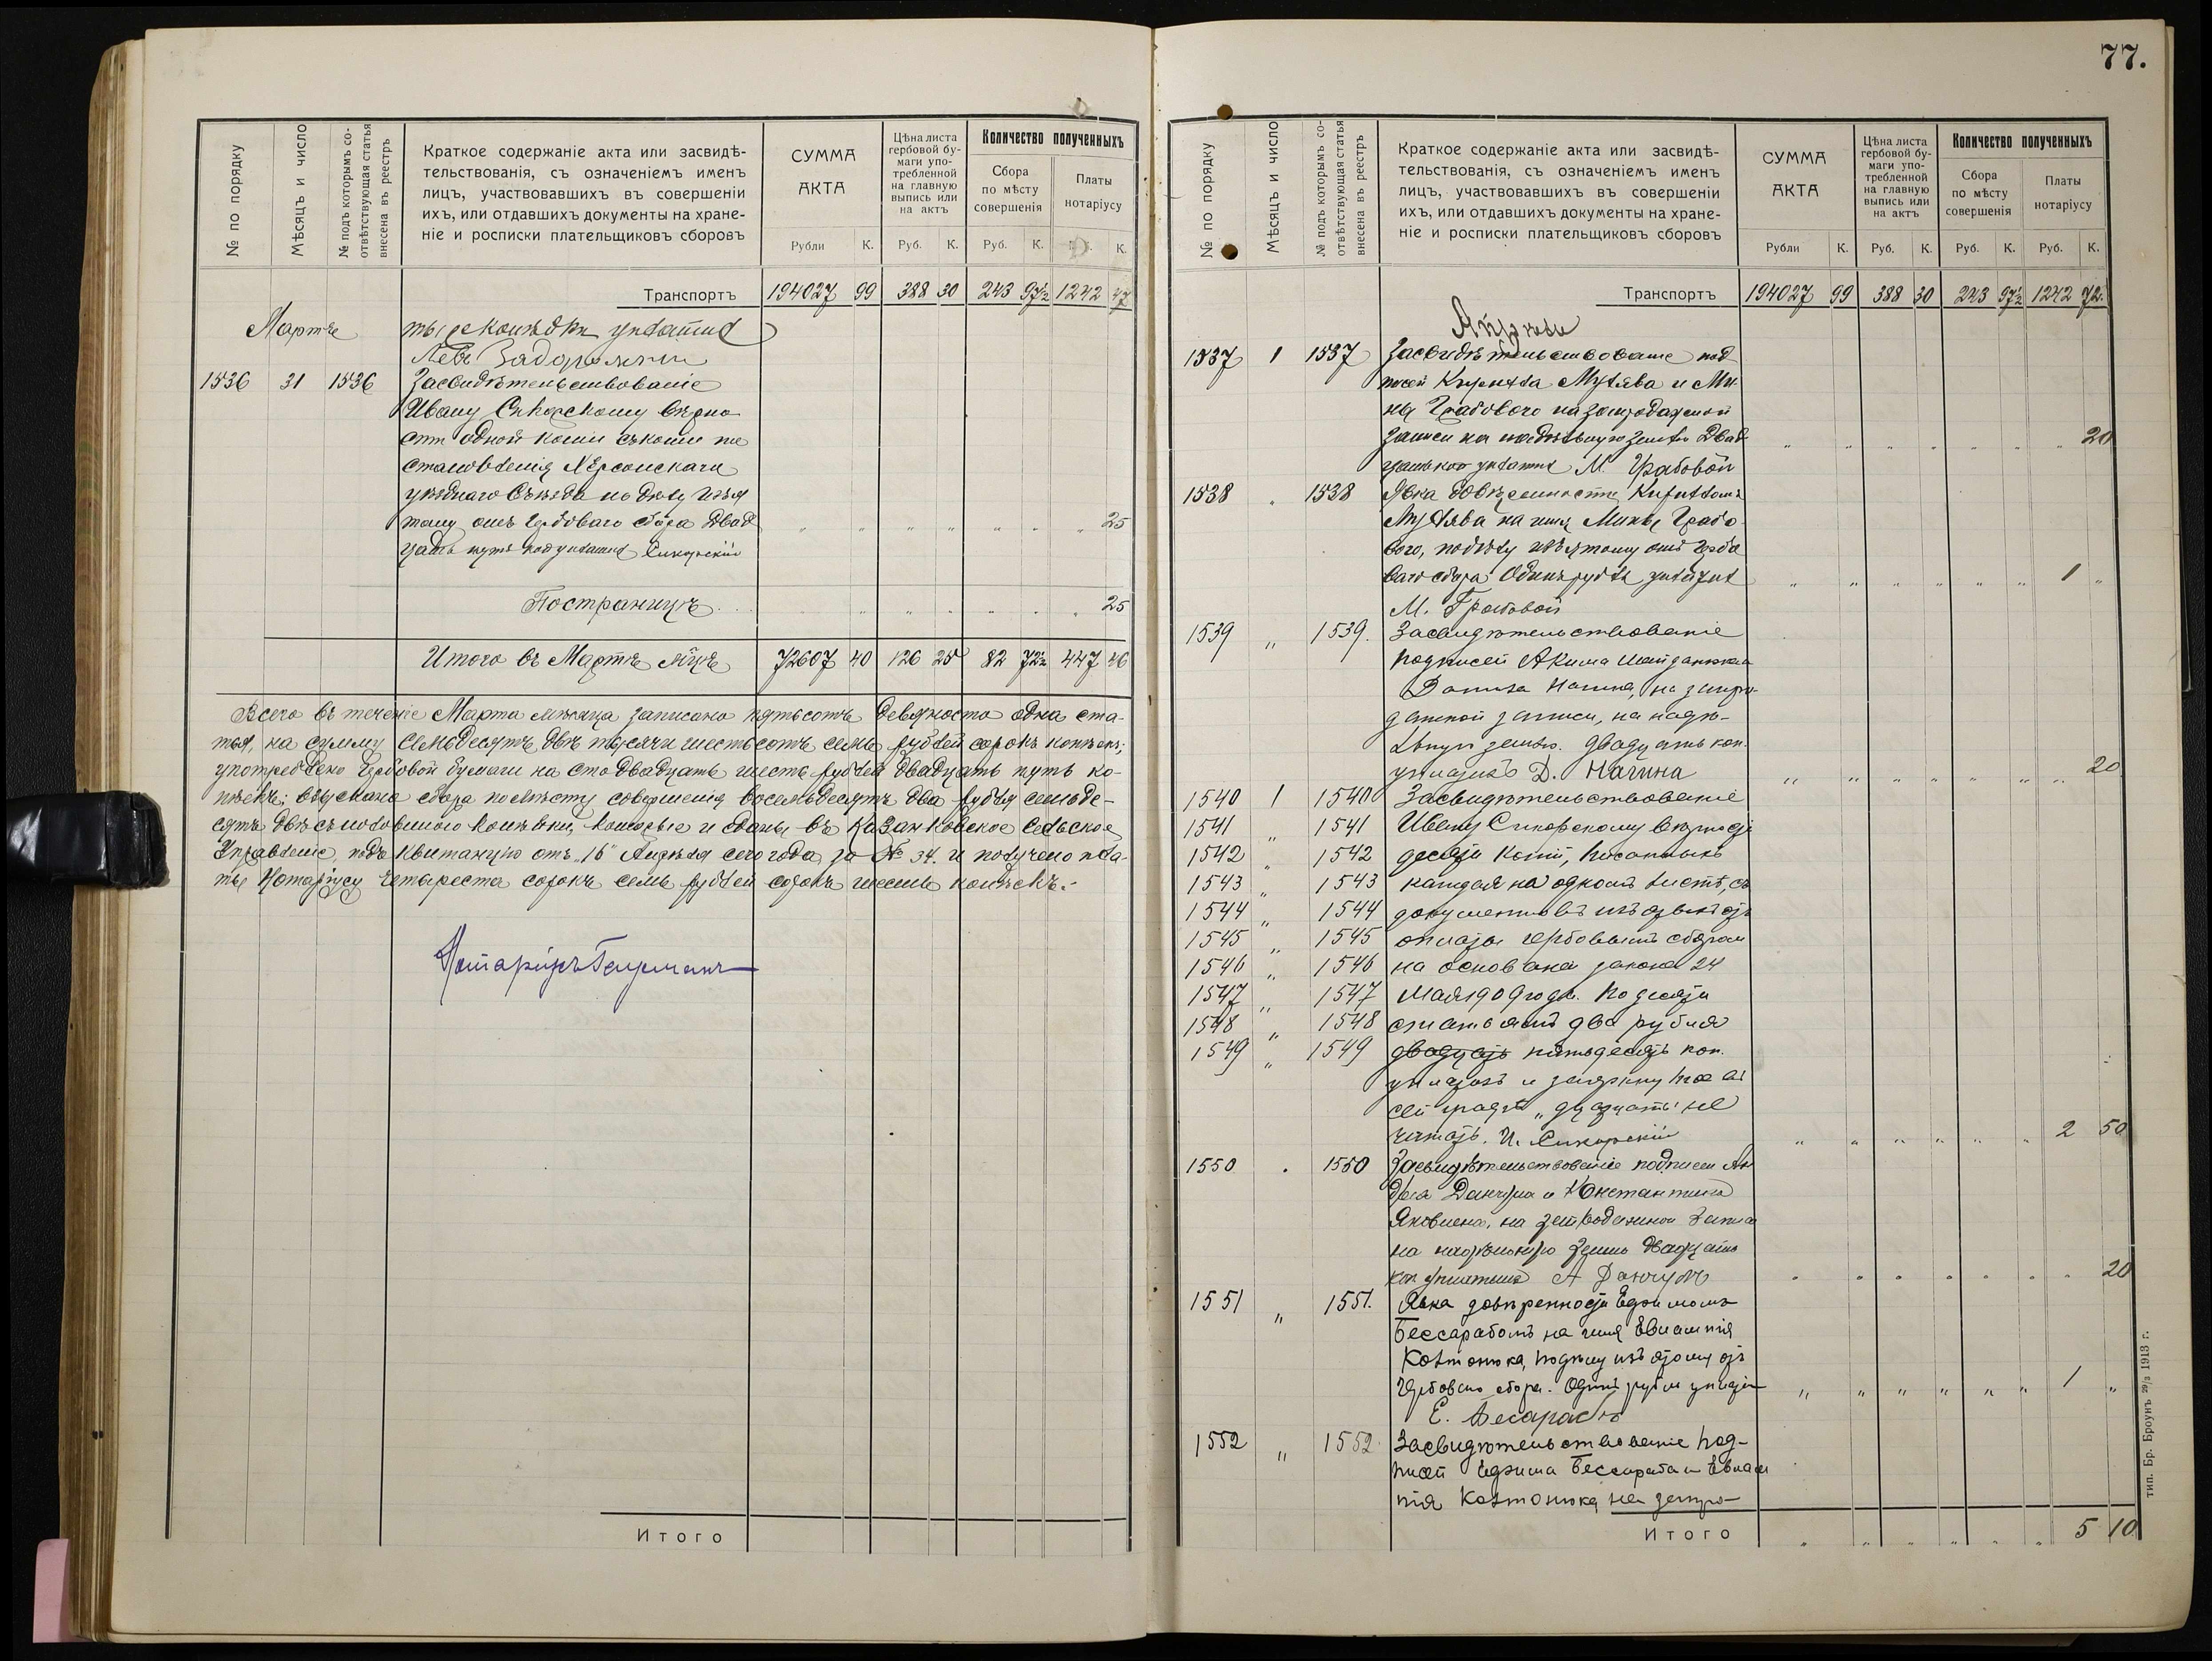 77.
№ по порядку
Мѣсяцъ и число
№ подъ которымъ со-
отвѣтствующая статья
внесена въ реестръ
Краткое содержаніе акта или засвидѣ-
тельствованія, съ означеніемъ именъ
лицъ, участвовавшихъ въ совершеніи
ихъ, или отдавшихъ документы на хране-
ніе и росписки плательщиковъ сборовъ
СУММА
АКТА
Рубли К.
Цѣна листа
гербовой бу-
маги упо-
требленной
на главную
выпись или
на актъ
Руб. К.
Количество полученныхъ
Сбора
по мѣсту
совершенія
Руб. К.
Платы
нотаріусу
К.
Транспортъ 194027 99 388 30 243 97½ 1242 47
Мартъ
уплатилъ
Левъ
1536 31 1536 Засвидѣтельствованіе
Ивану Сикорскому вѣрно
сти одной копіи съ копіи по
становленія Херсонскаго
уѣзднаго Съѣзда по дѣлу изъя
тому отъ Гербоваго сбора Двад „ „ „ „ „ „ „ 25
цать пять коп уплатилъ Сикорскій
Постраницъ „ „ „ „ „ „ 25
Итого въ Мартѣ м-цѣ 72607 40 126 25 82 72½ 447 46
Всего въ теченіе Марта мѣсяца записано пятьсотъ девяносто одна ста-
тья, на сумму семьдесятъ двѣ тысячи шестьсотъ семь рублей сорокъ копѣекъ;
употреблено Гербовой бумаги на сто двадцать шесть рублей двадцать пять ко-
пѣекъ; взыскано сбора по мѣсту совершенія восемьдесятъ два рубля семьде-
сятъ двѣ съ половиною копѣйки, которые и сданы въ Казанковское Сельское
Управленіе, подъ квитанцію отъ „16" Апрѣля сего года за № 34. и получено пла-
ты Нотаріусу четыреста сорокъ семь рублей сорокъ шесть копѣекъ.-
Нотаріусъ
Итого
№ по порядку
Мѣсяцъ и число
№ подъ которымъ со-
отвѣтствующая статья
внесена въ реестръ
Краткое содержаніе акта или засвидѣ-
тельствованія, съ означеніемъ именъ
лицъ, участвовавшихъ въ совершеніи
ихъ, или отдавшихъ документы на хране-
ніе и росписки плательщиковъ сборовъ
СУММА
АКТА
Рубли К.
Цѣна листа
гербовой бу-
маги упо-
требленной
на главную
выпись или
на актъ
Руб. К.
Количество полученныхъ
Сбора
по мѣсту
совершенія
Руб. К.
Платы
нотаріусу
Руб. К.
Транспортъ 194027 99 388 30 243 97½ 1242 72.
Апрѣль
1537 1 1537 Засвидѣтельствованіе под
писей Кирилла и Ми
ны Грабового на запродажной
записи на надѣльную землю Двад „ „ „ „ „ „ „ 20
цать коп уплатилъ М. Грабовой
1538 „ 1538 Явка довѣренности Кирилломъ
на имя Мины Грабо
вого, по дѣлу изъятому отъ Герба
ваго сбора Одинъ рубль уплатилъ „ „ „ „ „ „ 1 „
М. Грабовой
1539 „ 1539. Засвидѣтельствованіе
подписей Акима
на запро-
дажной записи, на надѣ-
льную землю. Двадцать коп.
уплатилъ Д. Качина „ „ „ „ „ „ „ 20
1540 1 1540 Засвидѣтельствованіе
1541 „ 1541 Ивану Сикорскому вѣрности
1542 „ 1542 десяти копій, писанныхъ
1543 „ 1543 каждая на одномъ листѣ, съ
1544 „ 1544 документовъ изъятыхъ отъ
1545 „ 1545 оплаты гербовымъ сборомъ
1546 „ 1546 на основаніи закона 24
1547 „ 1547 Мая 1909 года. По десяти
1548 „ 1548 статьямъ два рубля
1549 „ 1549 двадцать пятьдесятъ коп.
уплатилъ и зачеркнутое въ
сей графѣ „двадцать" не
читать. И. Сикорскій „ „ „ „ „ „ 2 50
1550 . 1550 Засвидѣтельствованіе подписей Ан
дрея и Константина
Яковлева, на запродажной записи
на надѣльную землю Двадцать
коп уплатилъ А „ „ „ „ „ „ „ 20
1551 „ 1551. Явка довѣренности Ефимомъ
Бессарабомъ на имя Евлампія
Колтонюка, по дѣлу изъятому отъ
Гербоваго сбора. Одинъ рубль уплатилъ „ „ „ „ „ „ 1 „
Е. Бесарабъ
1552 „ 1552 Засвидѣтельствованіе под-
писей Ефима Бессараба и Евлам
пія Колтонюка, на запро-
Итого „ „ „ „ „ „ 5 10
тип. Бр. Броунъ 29/3 1913 г.